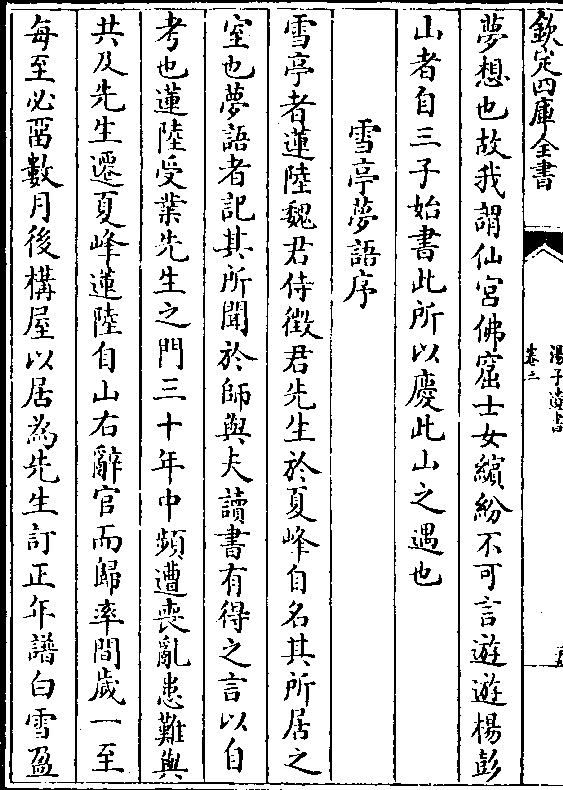 欽定四庫全書
湯子遺書
卷三
夢想也故我謂仙宮佛窟士女繽紛不可言遊遊楊彭
山者自三子始書此所以慶此山之遇也
雪亭夢語序
雪亭者蓮陸魏君侍徵君先生於夏峰自名其所居之
室也夢語者記其所聞於師與夫讀書有得之言以自
考也蓮陸受業先生之門三十年中頻遭喪亂患難與
共及先生遷夏峰蓮陸自山右辭官而歸率間歲一至
每至必畱數月後構屋以居為先生訂正年譜白雪盈